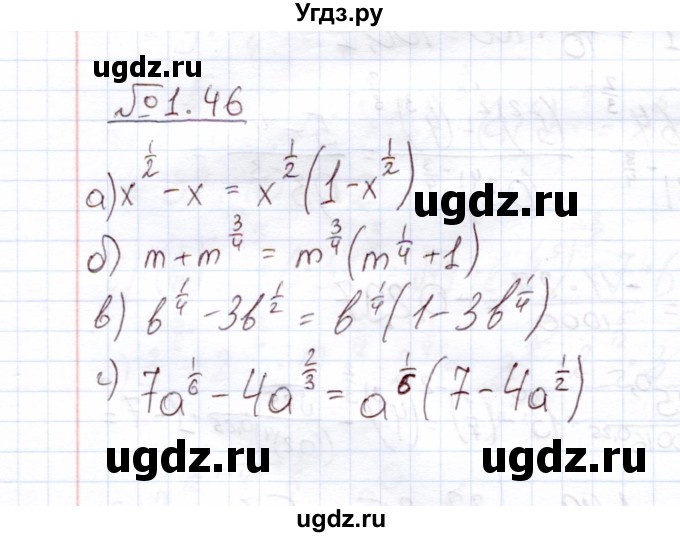 Угдз.ру
ugdz.ru
№1.46
а) x^(1/2) - x = x^(1/2)(1 - x^(1/2))
ugdz.ru
б) m + m^(3/4) = m^(3/4)(m^(1/4) + 1)
в) b^(1/4) - 3b^(1/2) = b^(1/4)(1 - 3b^(1/4))
г) 7a^(1/6) - 4a^(2/3) = a^(1/6)(7 - 4a^(1/2))
ugdz.ru ugdz.ru
ugdz.ru